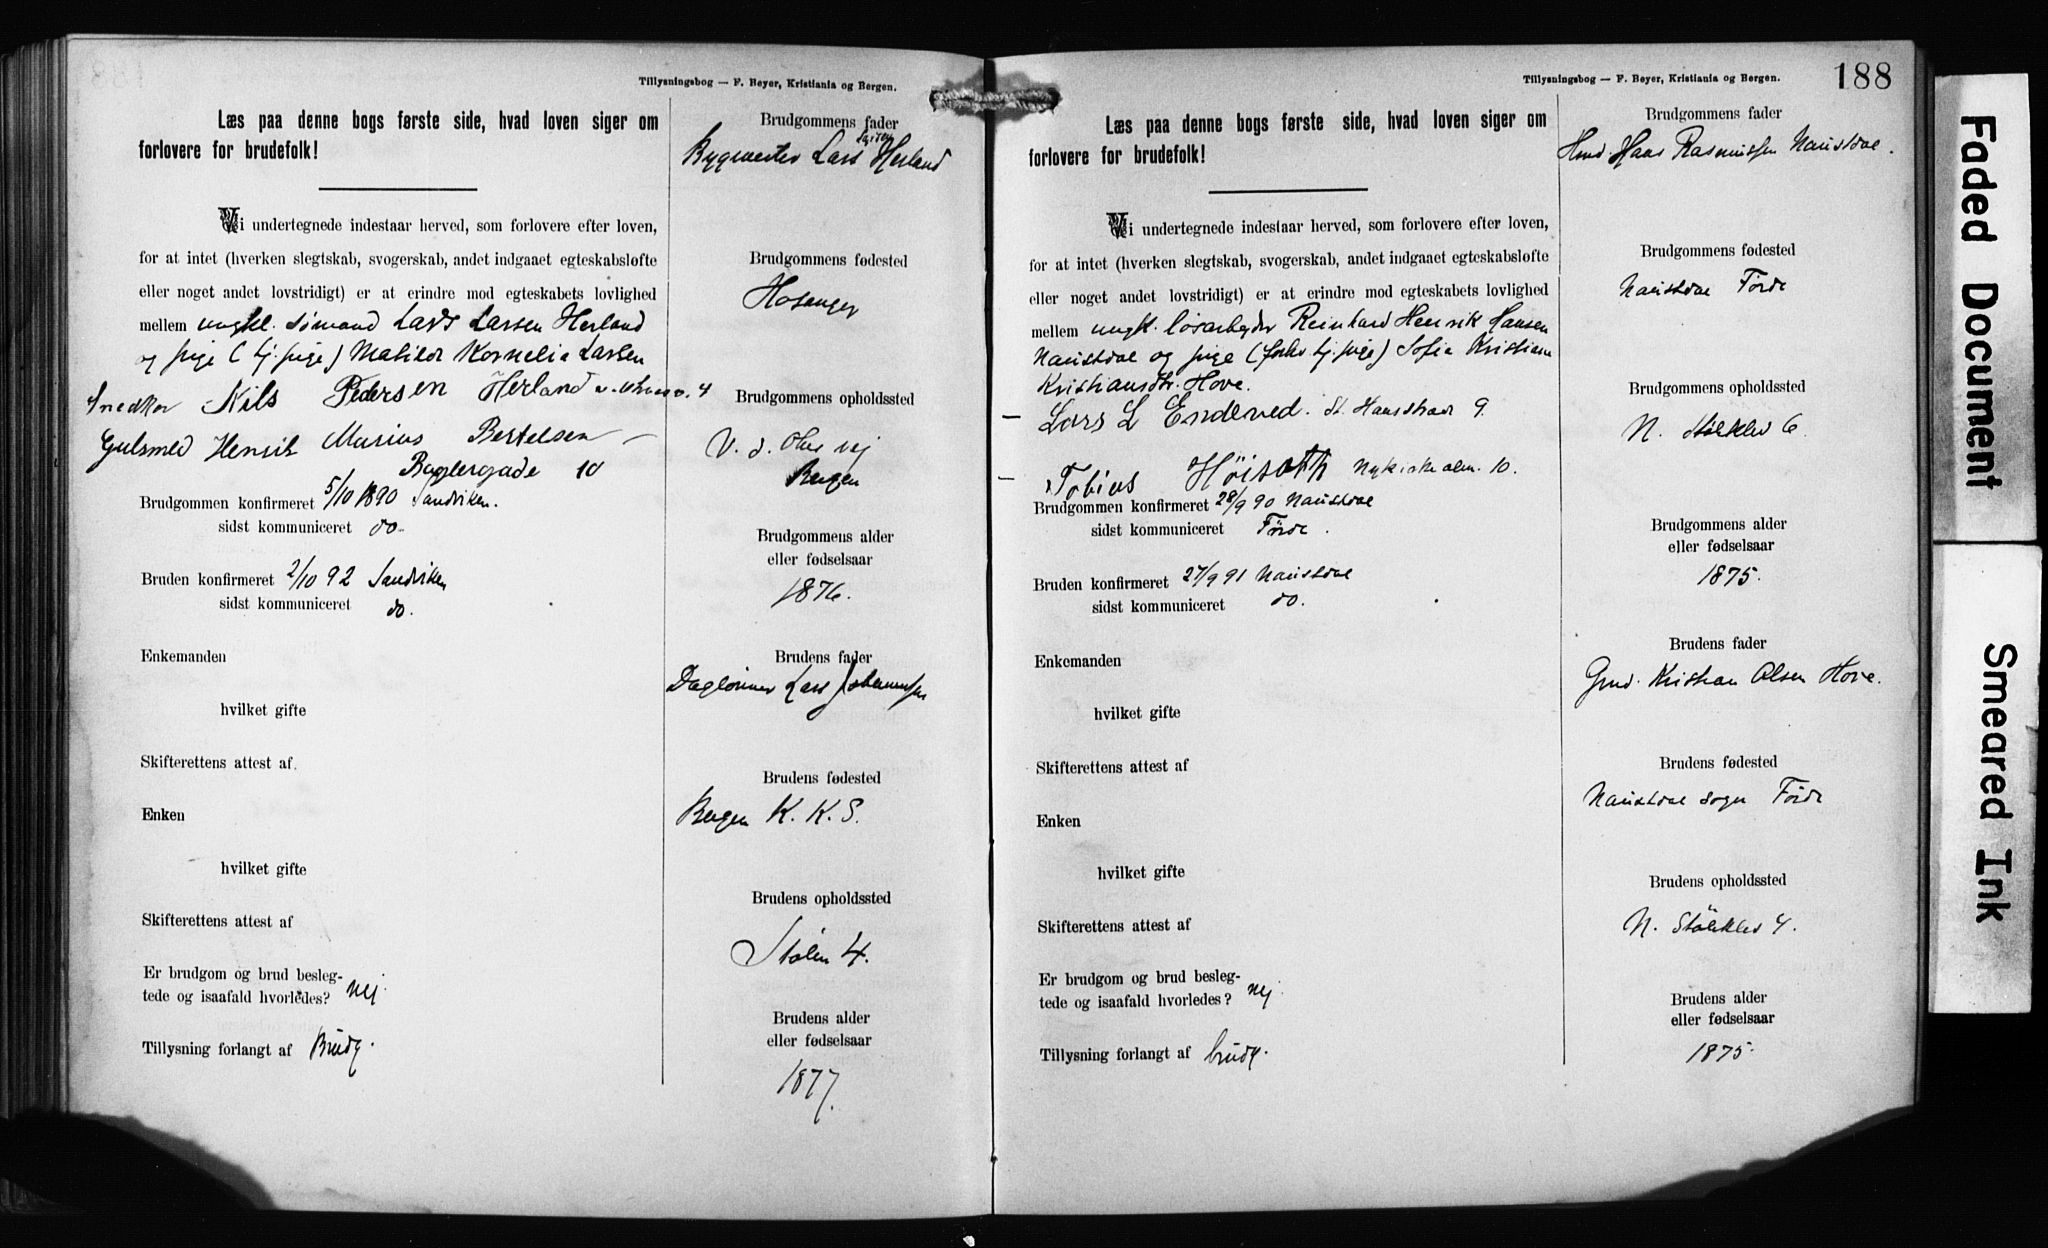 Tillysningsbog — F. Beyer, Kristiania og Bergen.
Læs paa denne bogs første side, hvad loven siger om
forlovere for brudefolk!
Vi undertegnede indestaar herved, som forlovere efter loven,
for at intet (hverken slegtskab, svogerskab, andet indgaaet egteskabsløfte
eller noget andet lovstridigt) er at erindre mod egteskabets lovlighed
mellem ungkl. sømand Lars Larsen Herland
og pige (tj. pige) Matilde Kornelia Larsen
Snedker Nils Pedersen Herland 4
Gulsmed Henrik Marius Bertelsen —
Baglergade 10
Brudgommen konfirmeret 5/10 1890 Sandviken.
sidst kommuniceret do.
Bruden konfirmeret 2/10 92 Sandviken
sidst kommuniceret do.
Enkemanden
hvilket gifte
Skifterettens attest af
Enken
hvilket gifte
Skifterettens attest af
Er brudgom og brud besleg-
tede og isaafald hvorledes? nej.
Tillysning forlangt af Brudg.
Brudgommens fader
Bygmester Lars Herland
Brudgommens fødested
Hosanger
Brudgommens opholdssted
V. d. Ole vej
Bergen
Brudgommens alder
eller fødselsaar
1876.
Brudens fader
Daglønner Lars Johannesen
Brudens fødested
Bergen K. K. S.
Brudens opholdssted
Stølen 4.
Brudens alder
eller fødselsaar
1877.
Tillysningsbog — F. Beyer, Kristiania og Bergen.
188
Læs paa denne bogs første side, hvad loven siger om
forlovere for brudefolk!
Vi undertegnede indestaar herved, som forlovere efter loven,
for at intet (hverken slegtskab, svogerskab, andet indgaaet egteskabsløfte
eller noget andet lovstridigt) er at erindre mod egteskabets lovlighed
mellem ungk. løsarbejder Reinhard Henrik Hansen
Naustdal og pige (forhv. tj. pige) Sofia Kristiane
Kristiansdtr. Hove.
— Lars L Endeved. St. Hansstræde 9.
— Tobias Höisæth Nykirkealm. 10.
Brudgommen konfirmeret 28/9 90 Naustdal
sidst kommuniceret Förde.
Bruden konfirmeret 27/9 91 Naustdal
sidst kommuniceret do.
Enkemanden
hvilket gifte
Skifterettens attest af
Enken
hvilket gifte
Skifterettens attest af
Er brudgom og brud besleg-
tede og isaafald hvorledes? nej.
Tillysning forlangt af brudg.
Brudgommens fader
Hmd. Hans Rasmussen Naustdal.
Brudgommens fødested
Naustdal Förde
Brudgommens opholdssted
N. Støleklev 6.
Brudgommens alder
eller fødselsaar
1875.
Brudens fader
Gmd. Kristian Olsen Hove.
Brudens fødested
Naustdal sogn Förde
Brudens opholdssted
N. Stöleklev 4.
Brudens alder
eller fødselsaar
1875.
Faded Document
Smeared Ink